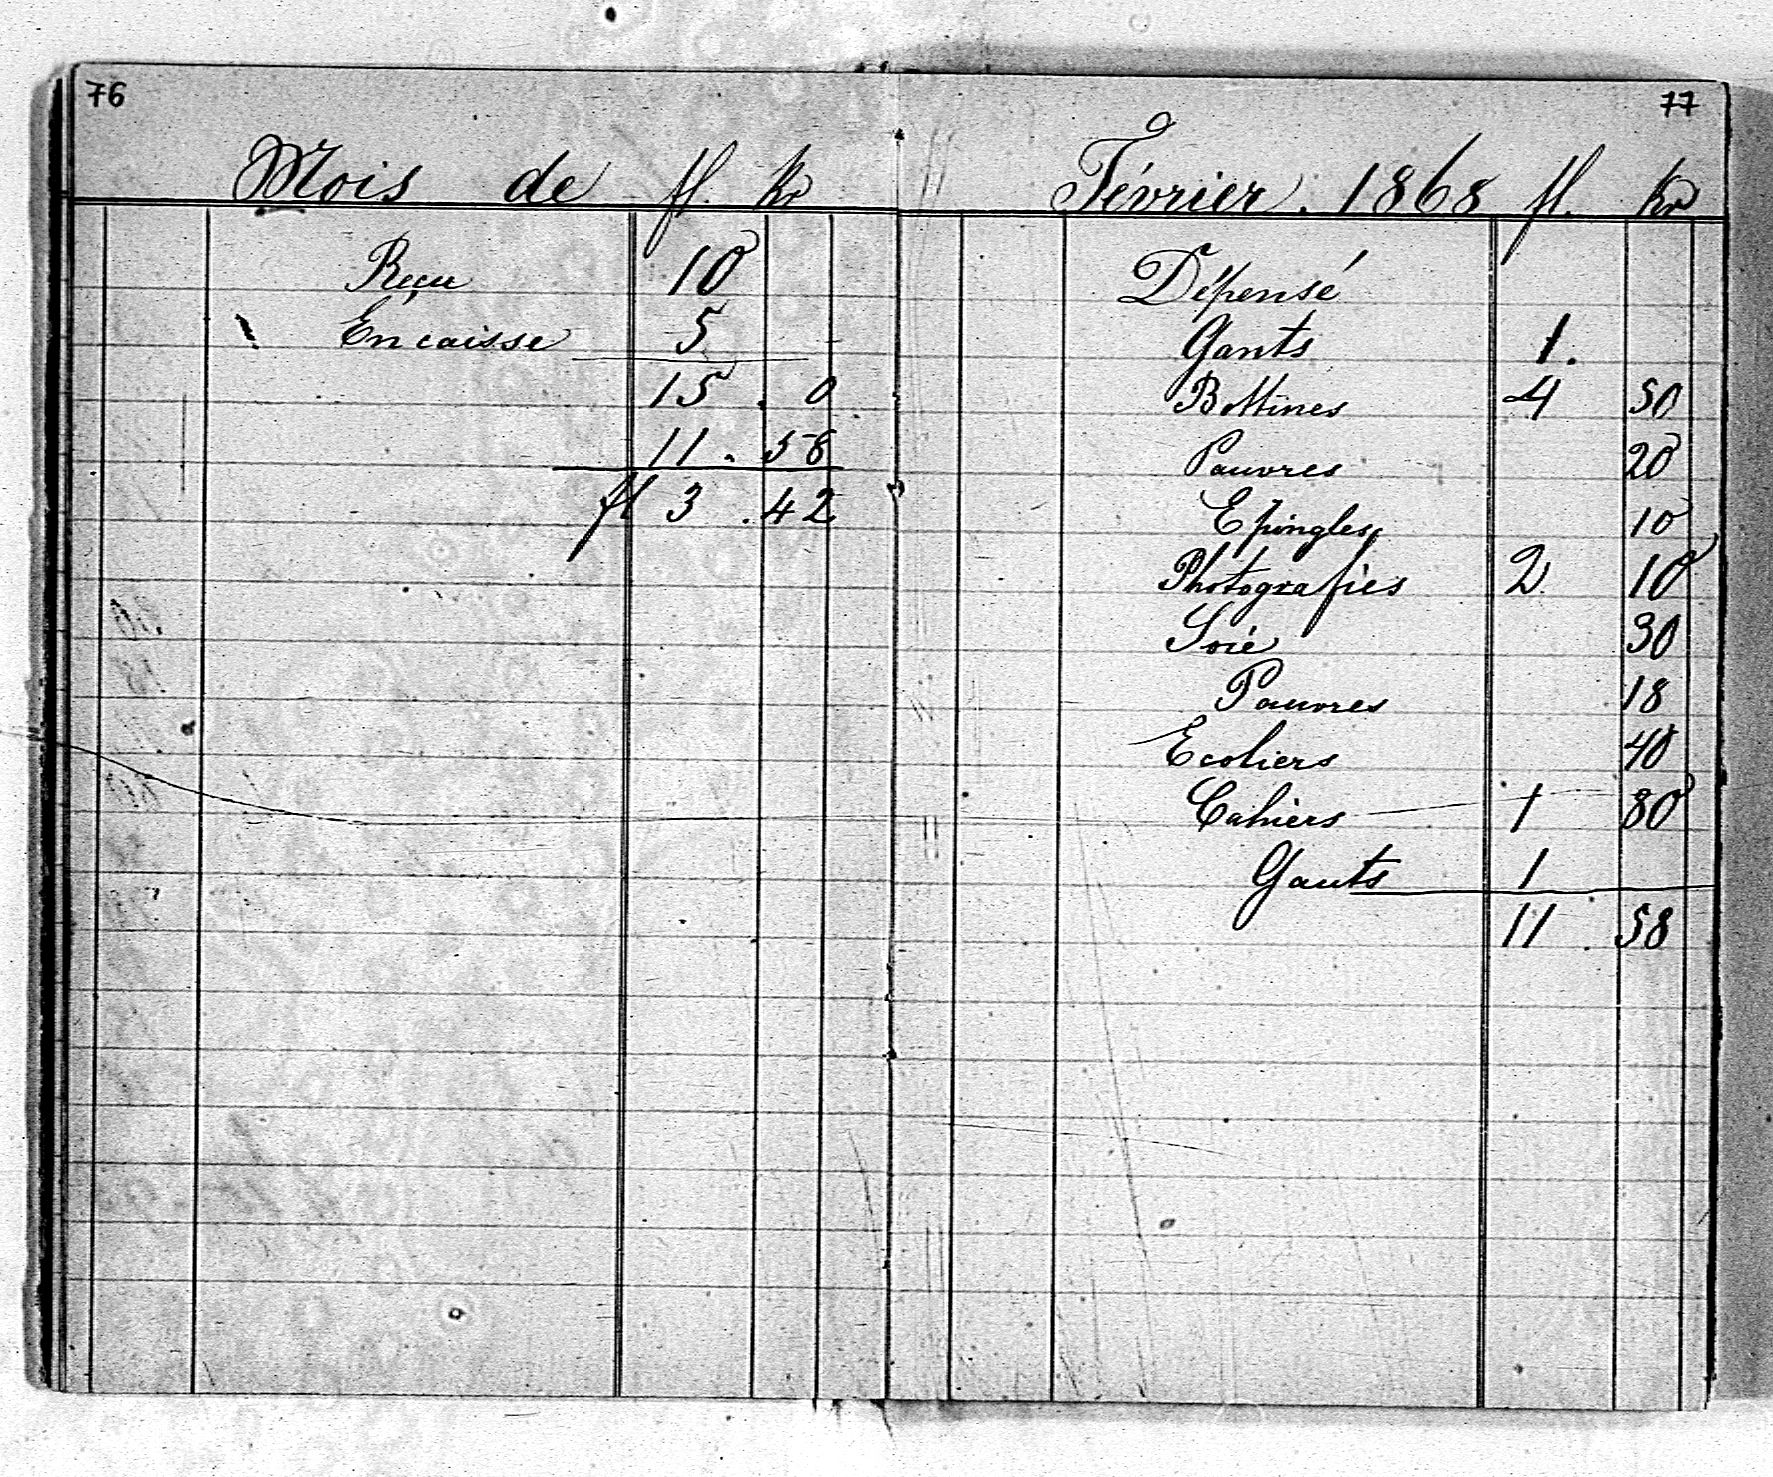 76
Mois de fl. Kr
Reçu 10
En caisse 5
15 . 0
11 . 58
fl 3 . 42
77
Février . 1868 fl. Kr
Dépensé
Gants 1.
Bottines 4 50
Pauvres 20
Epingles 10
Photografies 2 10
Soié 30
Pauvres 18
Ecoliers 40
Cahiers 1 80
Gants 1
11 . 58